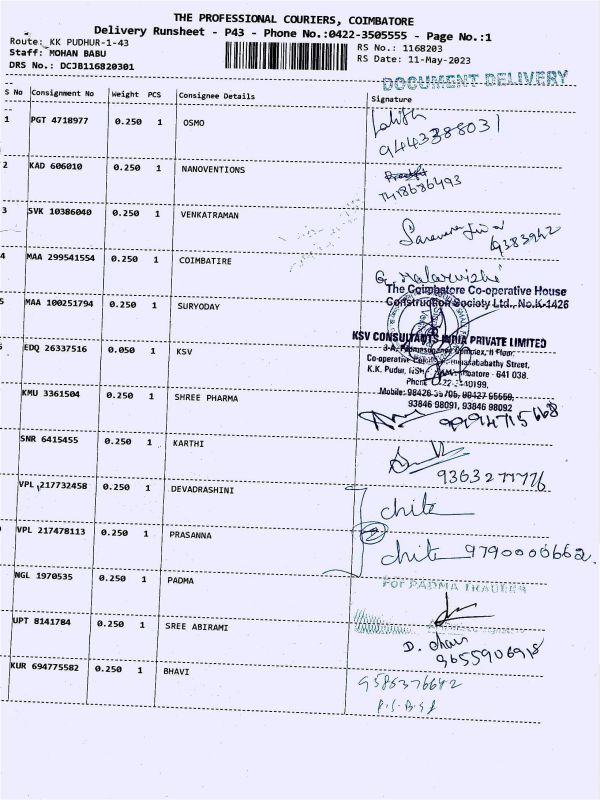 THE PROFESSIONAL COURIERS, COIMBATORE
Delivery Runsheet - P43 - Phone No.:0422-3505555 - Page No.:1
Route: KK PUDHUR-1-43
Staff: MOHAN BABU
DRS No.: DCJB116820301
RS No.: 1168203
RS Date: 11-May-2023
DOCUMENT DELIVERY
S No Consignment No Weight PCS Consignee Details Signature
1 PGT 4718977 0.250 1 OSMO
9443388031
2 KAD 606010 0.250 1 NANOVENTIONS
7418686493
3 SVK 10386040 0.250 1 VENKATRAMAN
9383942
4 MAA 299541554 0.250 1 COIMBATIRE
The Coimbatore Co-operative House
Construction Society Ltd., No.K-1426
5 MAA 100251794 0.250 1 SURYODAY
KSV CONSULTANTS INDIA PRIVATE LIMITED
EDQ 26337516 0.050 1 KSV
Co-operative
K.K. Pudur, 641 038.
93846 98091, 93846 98092
KMU 3361504 0.250 1 SHREE PHARMA
SNR 6415455 0.250 1 KARTHI
9363277776
VPL 217732458 0.250 1 DEVADRASHINI
chita
VPL 217478113 0.250 1 PRASANNA
chita 9790006662.
NGL 1970535 0.250 1 PADMA
For PADMA TRADERS
UPT 8141784 0.250 1 SREE ABIRAMI
9655906918
KUR 694775582 0.250 1 BHAVI
9586376642